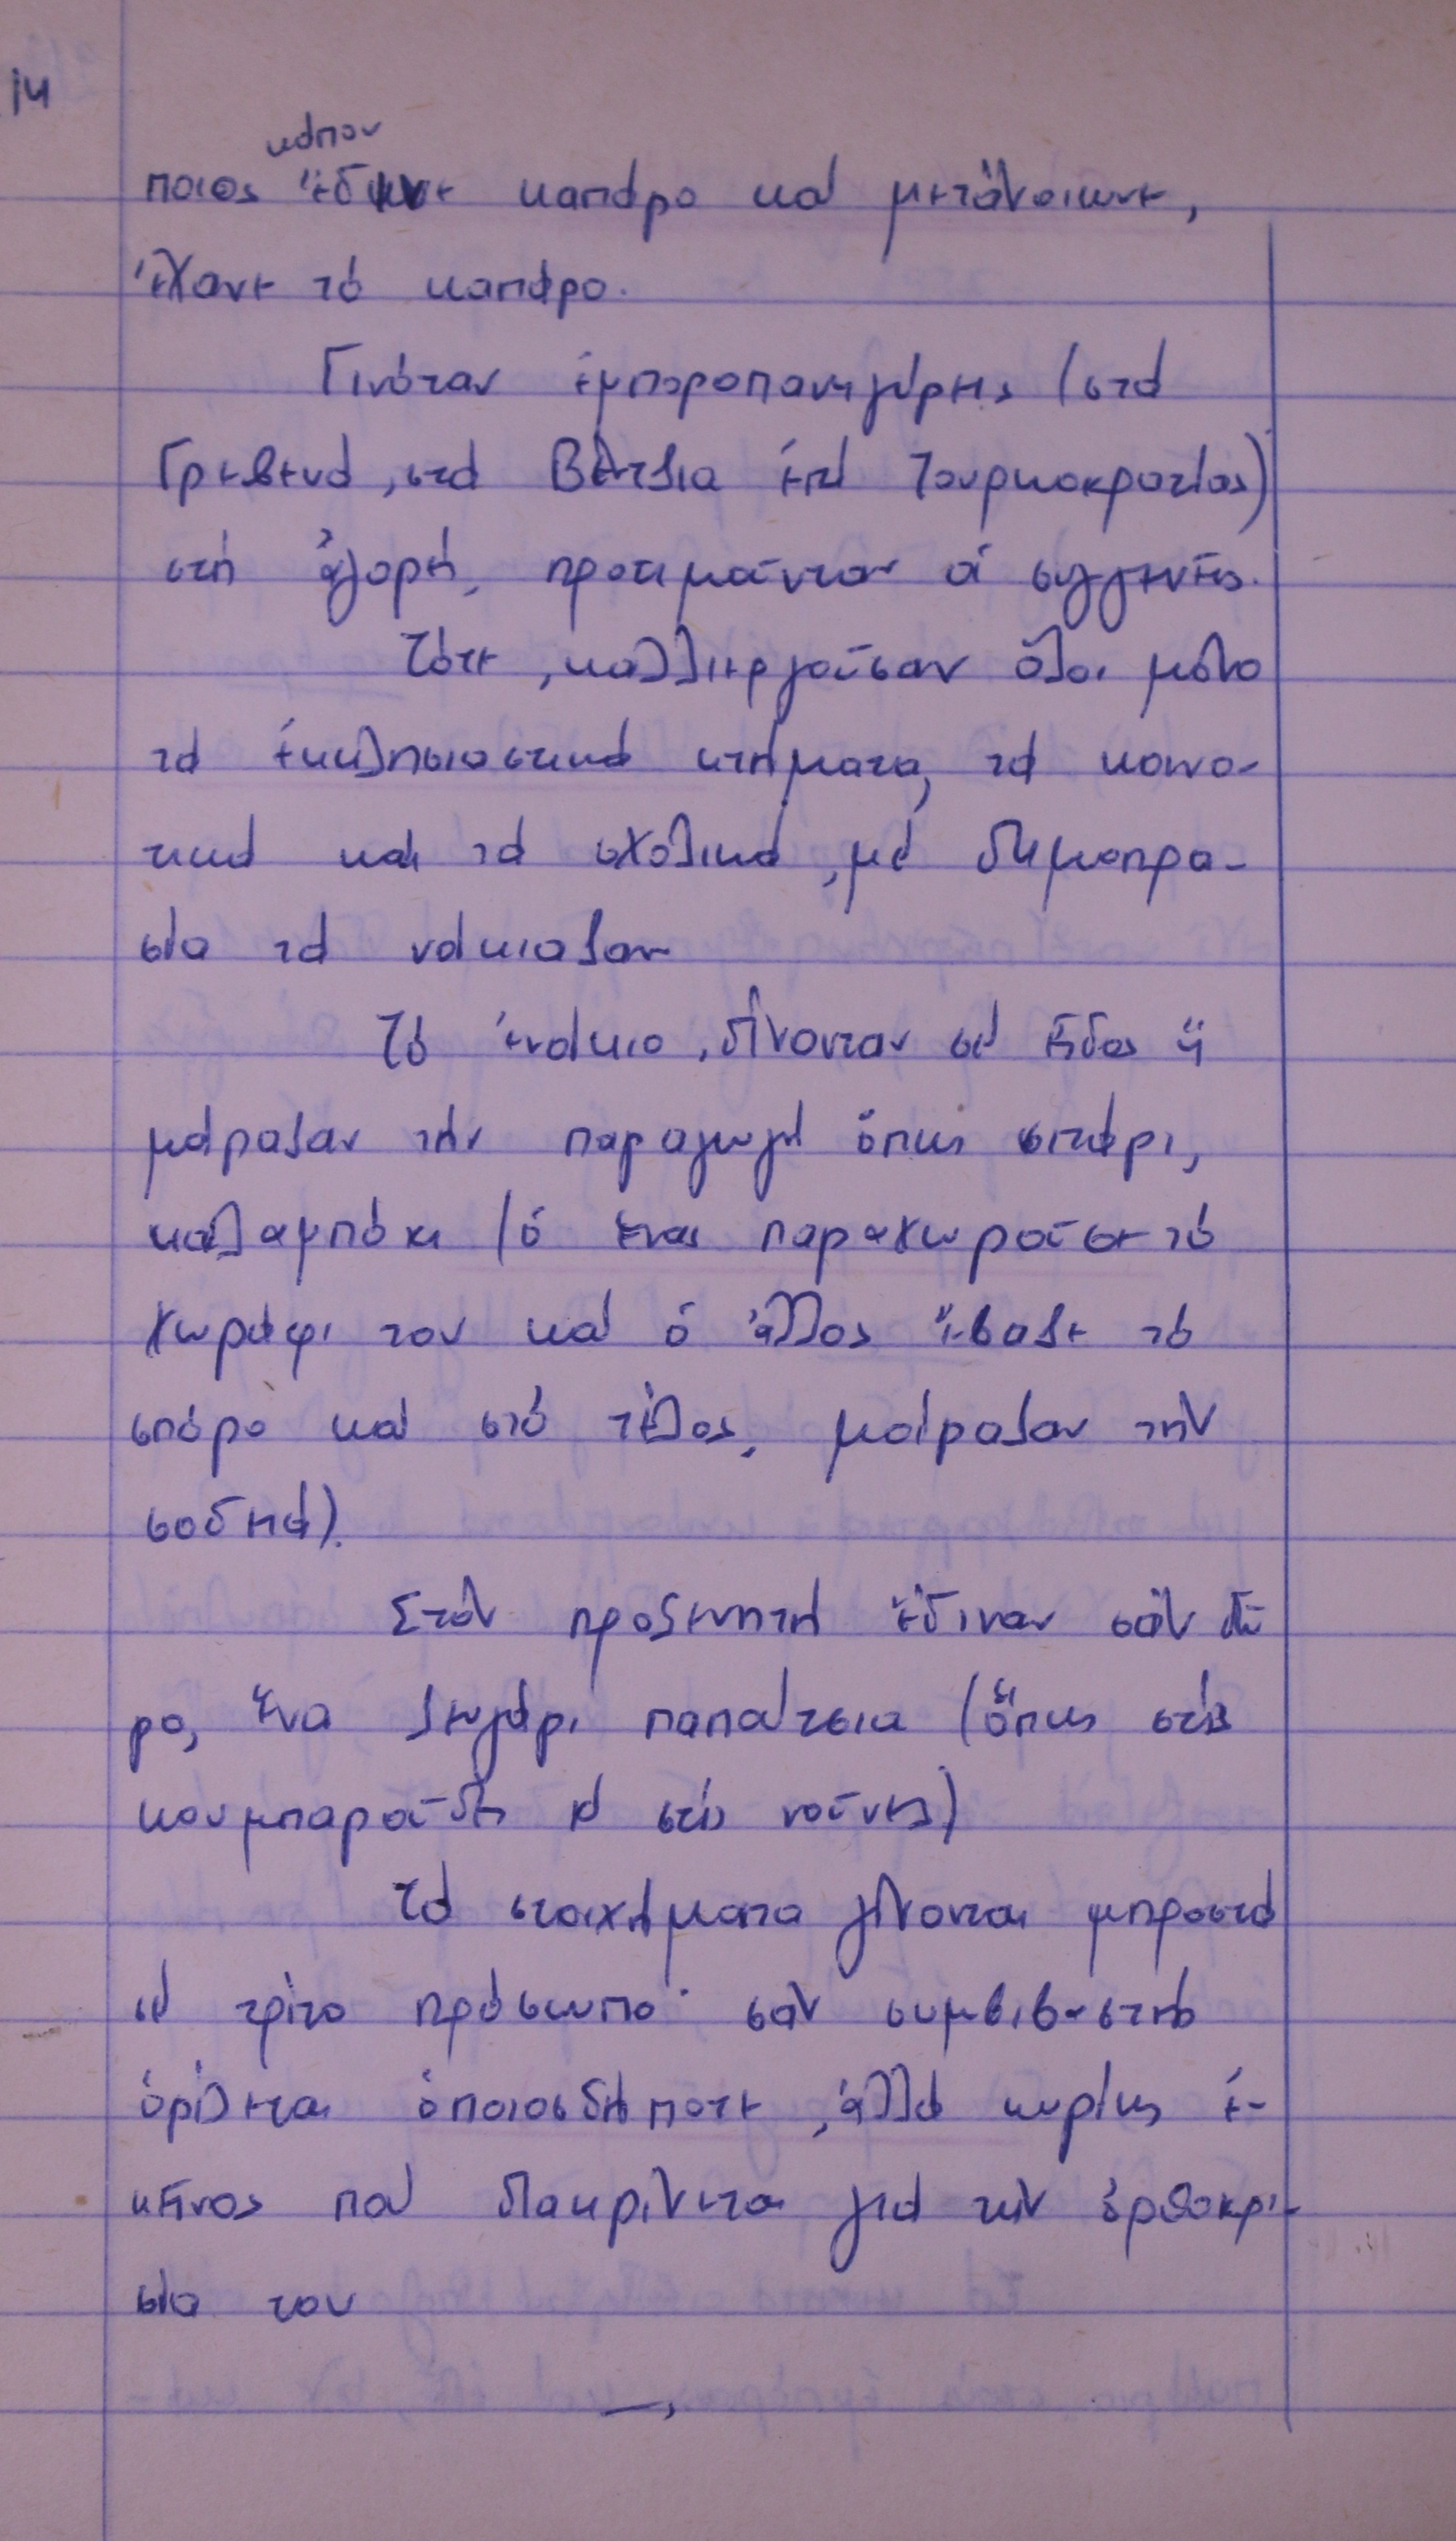 14
κάπου
ποιος ἔδωσε καπάρο καί μετάνοιωνε,
ἔχανε τό καπάρο.
Γινόταν ἐμποροπανηγύρεις (στά
Γρεβενά, στά Βέντζια ἐπί Τουρκοκρατίας)
στή ἀγορή, προτιμοῦνταν οἱ συγγενεῖς.
Τότε, καλλιεργοῦσαν ὅλοι μόνο
τά ἐκκλησιαστικά κτήματα, τά κοινο-
τικά και τά σχολικά, μέ δημοπρα-
σία τά νοίκιαζαν
Τό ἐνοίκιο, δίνονταν σέ εἶδος ἤ
μοίραζαν τήν παραγωγή ὅπως σιτάρι,
καλαμπόκι (ὁ ἕνας παραχωροῦσε τό
χωράφι του καί ὁ ἄλλος ἔβαζε τό
σπόρο καί στό τέλος, μοίραζαν τήν
σοδειά).
Στόν προξενητή ἔδιναν σάν δῶ
ρο, ἕνα ζευγάρι παπούτσια (ὅπως στίς
κουμπαροῦδες κ' στίς νοῦνες)
Τά στοιχήματα γίνονται μπροστά
σέ τρίτο πρόσωπο· σάν συμβιβαστής
ὁρίζεται ὁποιοσδήποτε, ἀλλά κυρίως ἐ-
κεῖνος πού διακρίνεται γιά τήν ὀρθοκρι-
σία του